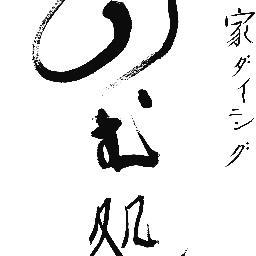 家ダイニング
のむ処